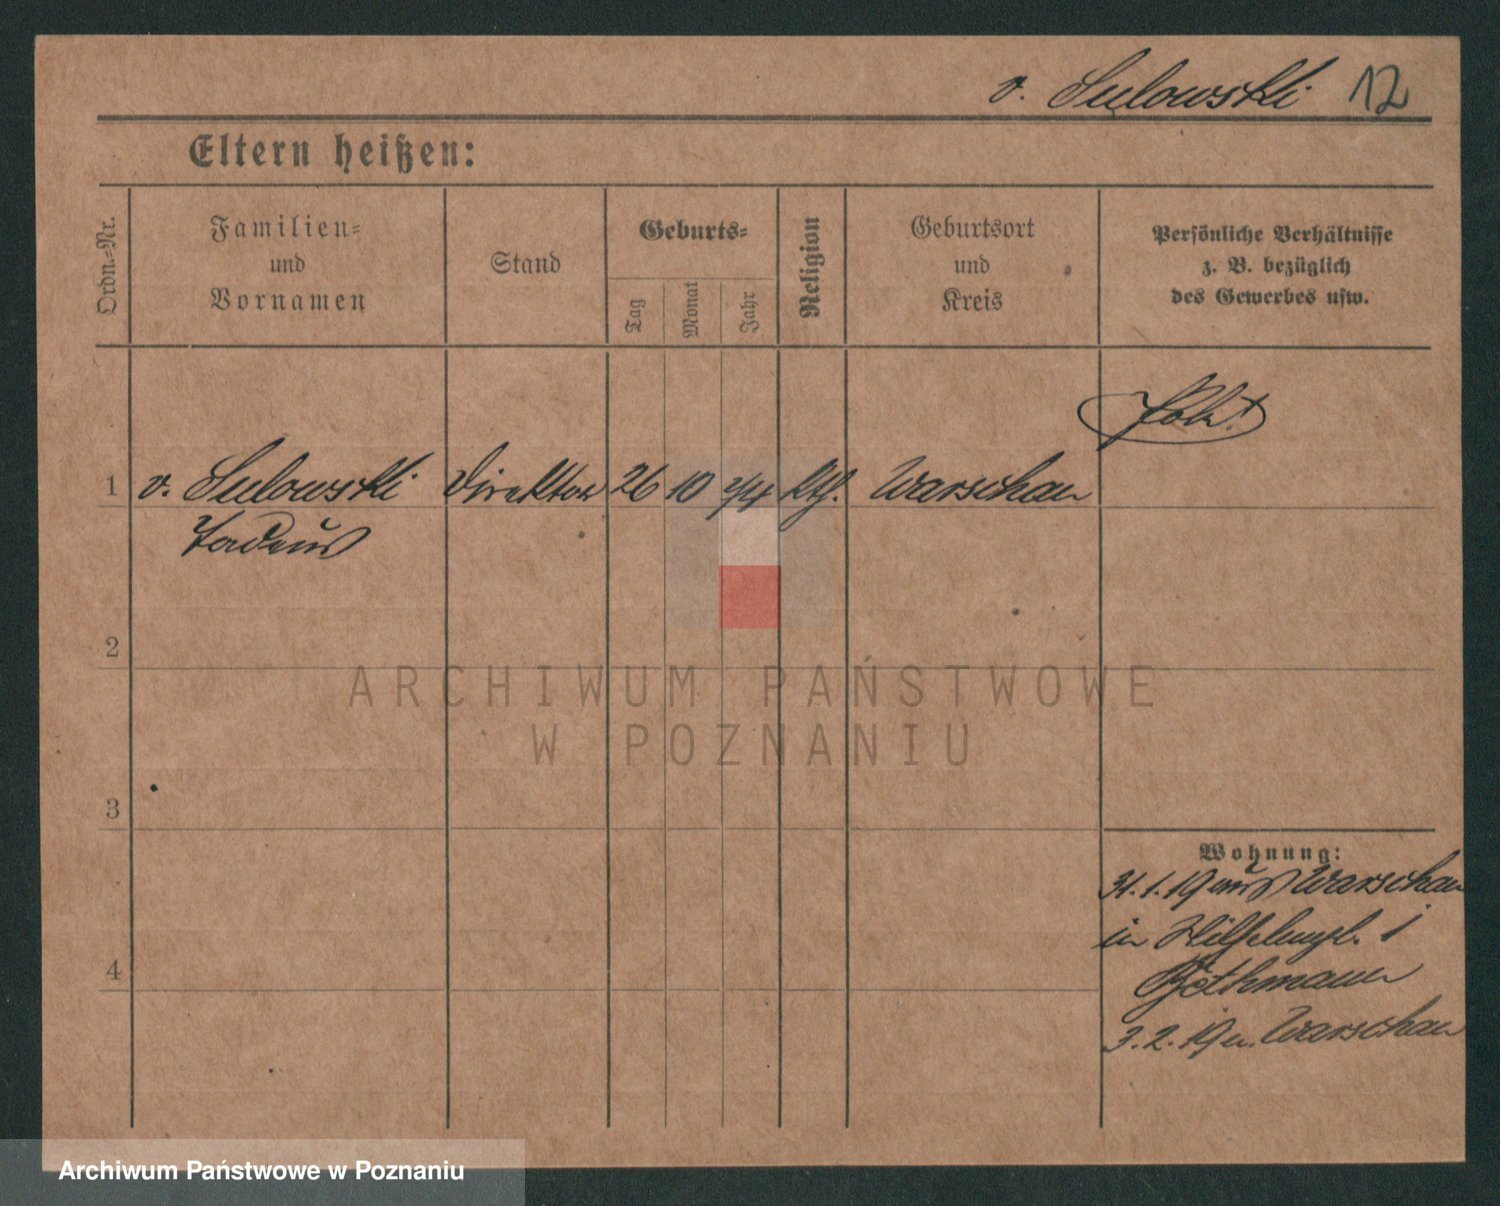 v. Sulowski 12
Eltern heißen:
Ordn.-Nr.
Familien-
und
Vornamen
Stand
Geburts-
Tag
Monat
Jahr
Religion
Geburtsort
und
Kreis
Persönliche Verhältnisse
z. B. bezüglich
des Gewerbes usw.
1 v. Sulowski Direktor 26 10 74 ktl. Warschau
Tadeus
2
3
4
ARCHIWUM PAŃSTWOWE
W POZNANIU
Wohnung:
31.1.19 aus Warschau
in
Bethmann
3.2.19 n. Warschau
Archiwum Państwowe w Poznaniu